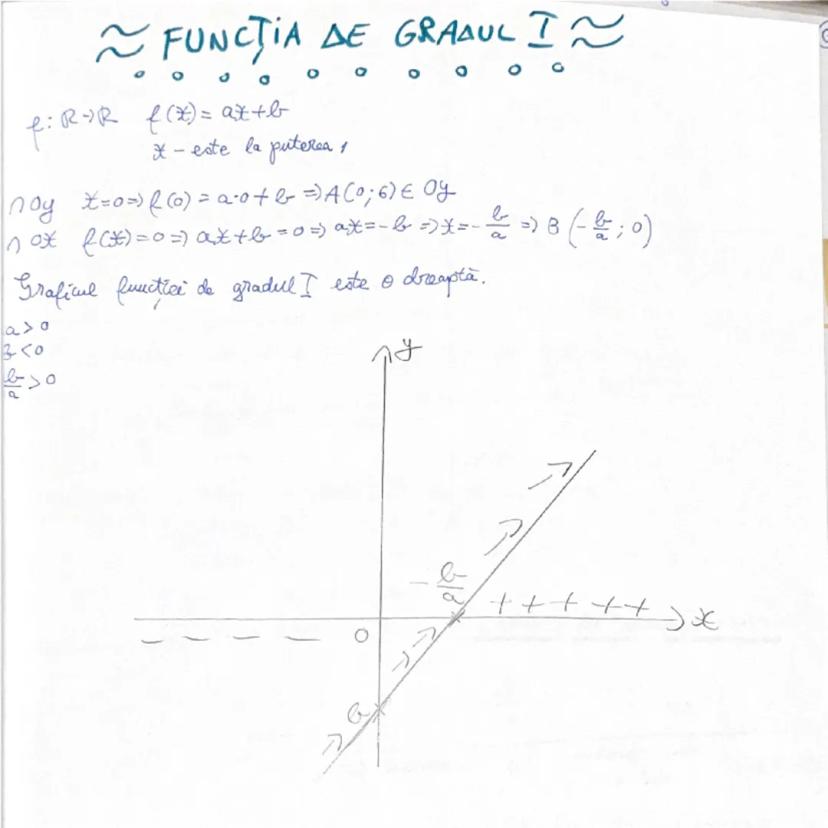 ≈ FUNCȚIA DE GRADUL I ≈
f: R→R f(x) = ax+b
x - este la puterea 1
∩ Oy x=0 => f(0) = a·0 + b => A(0; b) ∈ Oy
∩ Ox f(x)=0 => ax+b=0 => ax=-b => x=-b/a => B(-b/a; 0)
Graficul funcției de gradul I este o dreaptă.
a>0
b<0
b/a >0
y
-b/a
+ + + + +
x
- - - -
0
b